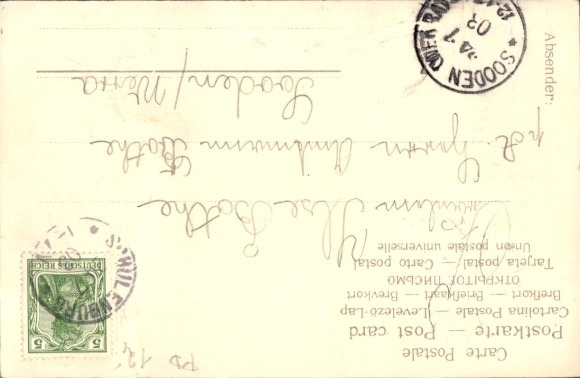 Carte Postale
Postkarte — Post card
Cartolina Postale (Levelező-Lap)
Brefkort — Briefkaart — Brevkort
ОТКРЫТОЕ ПИСЬМО
Tarjeta postal — Carto postal
Union postale universelle
Fräulein Ilse Bothe
p. A. Herrn Amtmann Bothe
Sooden/Werra
Absender:
DEUTSCHES REICH
5
5
SCHULENBURG
SOODEN (WERRA)
24 7
03
12-1